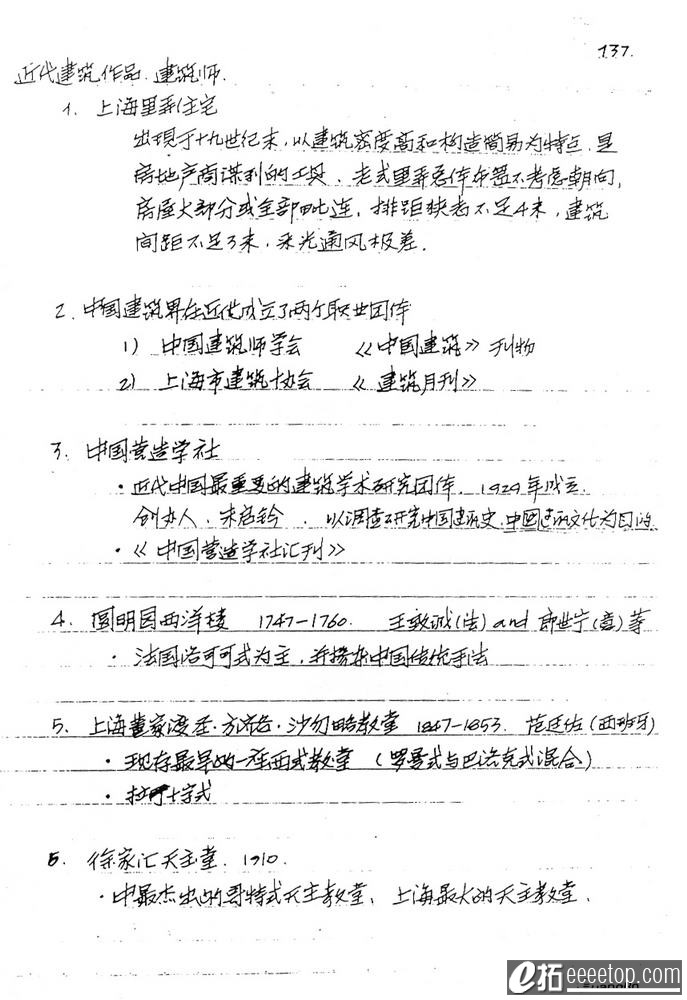 137.
近代建筑作品、建筑师.
1. 上海里弄住宅
出现于十九世纪末,以建筑密度高和构造简易为特点.是
房地产商谋利的工具. 老式里弄总体布置不考虑朝向,
房屋大部分或全部毗连. 排距狭者不足4米,建筑
间距不足3米,采光通风极差.
2. 中国建筑界在近代成立了两个职业团体
1) 中国建筑师学会 《中国建筑》刊物
2) 上海市建筑协会 《建筑月刊》
3. 中国营造学社
· 近代中国最重要的建筑学术研究团体. 1929年成立.
创办人、朱启钤 . 以调查研究中国建筑史、中国建筑文化为目的.
· 《中国营造学社汇刊》
4. 圆明园西洋楼 1747-1760. 王致诚(法) and 郎世宁(意)等
· 法国洛可可式为主,并掺杂中国传统手法
5. 上海董家渡圣·方济各·沙勿略教堂 1847-1853. 范廷佐(西班牙)
· 现存最早的一座西式教堂 (罗曼式与巴洛克式混合)
· 拉丁十字式
5. 徐家汇天主堂. 1910.
· 中最杰出的哥特式天主教堂、上海最大的天主教堂.
e拓eeeetop.com